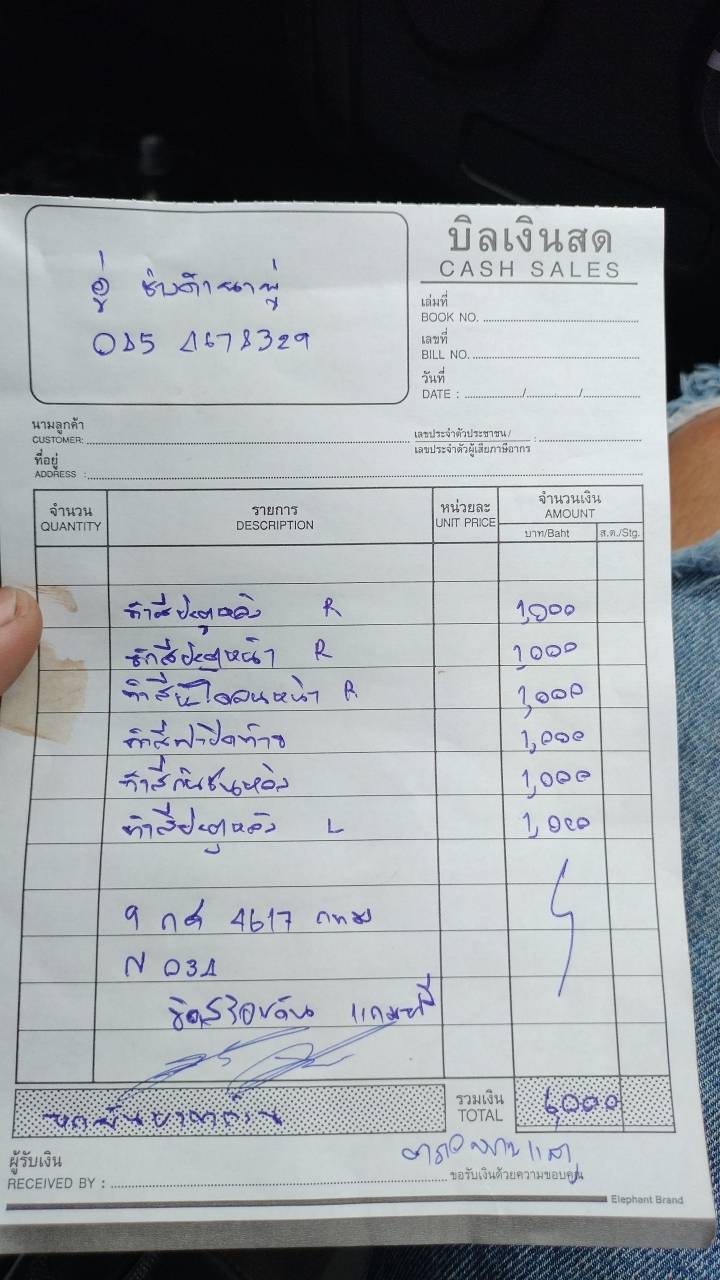 บิลเงินสด
CASH SALES
อู่
085
เล่มที่
BOOK NO.
เลขที่
BILL NO.
วันที่
DATE : / /
นามลูกค้า
CUSTOMER:
เลขประจำตัวประชาชน /
เลขประจำตัวผู้เสียภาษีอากร :
ที่อยู่
ADDRESS :
จำนวน รายการ หน่วยละ จำนวนเงิน
QUANTITY DESCRIPTION UNIT PRICE AMOUNT
บาท/Baht ส.ต./Stg.
ทำสีประตูหลัง R 1,000
ทำสีประตูหน้า R 1,000
ทำสี หน้า R 1,000
ทำสีฝาปิดท้าย 1,000
ทำสีกันชนหลัง 1,000
ทำสีประตูหลัง L 1,000
4617 กทม
ขัดสีรอบคัน
รวมเงิน
TOTAL 6,000
หกพันบาทถ้วน
ผู้รับเงิน
RECEIVED BY :
ขอรับเงินด้วยความขอบคุณ
Elephant Brand